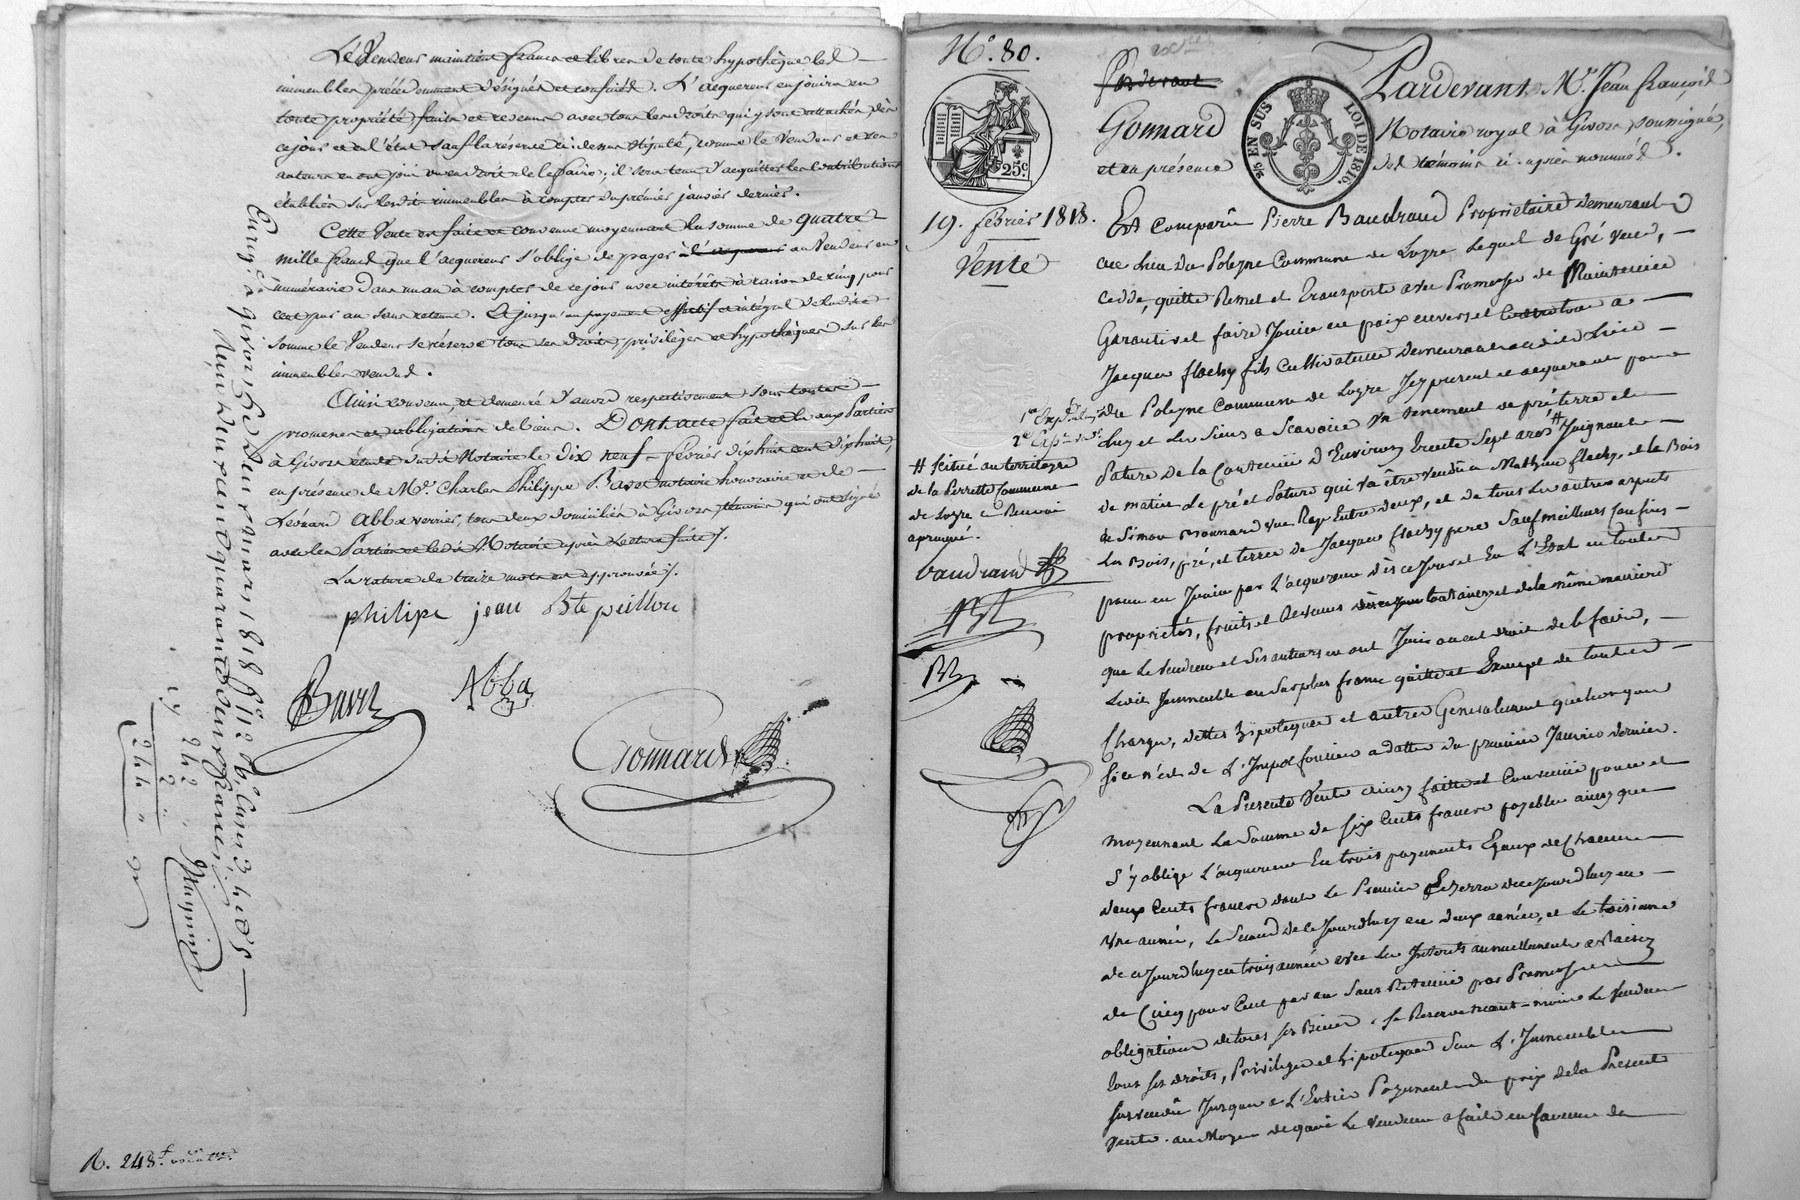 Le Vendeur maintient francs et libres de toute hypothèque les
immeubles précédemment désignés et confinés. L'acquereur en jouira en
toute propriété fruits et revenus avec tous les droits qui y sont attachés, dès
ce jour et en l'état sauf la réserve ci dessus stipulé, comme le Vendeur et ses
auteurs en ont joui ou eu droit de le faire; il sera tenu d'acquitter les contributions
établies sur lesdits immeubles à compter du premier janvier dernier.
Cette Vente est faite et convenue moyennant la somme de quatre
mille francs que l'acquereur s'oblige de payer au Vendeur en
numéraire dans un an à compter de ce jour avec intérêts à raison de cinq pour
cent par an sans retenue. Et jusqu'au payement effectif et intégral de ladite
somme le Vendeur se réserve tous ses droits, privilèges et hypothèques sur les
immeubles vendus.
Ainsi convenu, et demeuré d'accord respectivement sous toutes
promesses et obligations de biens. Dont acte fait et lu aux Parties
à Givors étude dudit Notaire le dix neuf février dix huit cent dix huit,
en présence de Me. Charles Philippe Bavet notaire honoraire et de
Léonard Abba verrier, tous deux domiciliés à Givors témoins qui ont signé
avec les Parties et ledit Notaire après Lecture faite.
La rature de treize mots est approuvée.
philipe jean Bte pullou
Bavet Abba
Gonnard
Enreg.é à givors, le deux mars 1818 f.o
Reçu deux cent quarante deux francs
242
2
244
R. 248.f
N.o 80.
25c
19. février 1818.
Vente
# scitué au territoyre
de la Perrette Commune
de Loyre ce Renvoi
aprouvé.
baudrand
Pardevant Me. Jean François
Gonnard Notaire royal à Givors, soussigné,
et en présence des témoins ci-après nommés.
¼ EN SUS LOI DE 1816.
Est comparû Pierre Baudrand Propriétaire demeurant
au lieu du Poleyne Commune de Loyre Lequel de Gré vend,
cedde, quitte Remet et transporte avec Promesse de Maintenir
Garantir et faire Jouir en paix envers et contre tous a
Jacques flachy fils Cultivateur demeurant audit Lieu
du Poleyne Commune de Loyre Icy present et acquerant pour
luy et les siens a Scavoir Un tenement de pré terre et
Pature de la Contenüe d'Environ trente Sept ares # Joignant
de matin le pré et Pature qui va être vendû a Mathieu flachy, et le Bois
de Simon monnard une Raye Entre deux, et de tous les autres aspects
Les Bois, pré, et terres de Jacques flachy pere Sauf meilleurs Confins
pour en Jouir par L'acquereur dès ce Jour et En L'Etat en toutes
proprietés, fruits et Revenus et de la même maniere
que Le Vendeur et Ses auteurs en ont Joui ou eu droit de le faire,
Ledit Immeuble au Surplus franc quitte et Exempt de toutes
Charges, dettes hipoteques et autres Generalement quelconques
Si ce n'est de L'Impot foncier a datter du premier Janvier dernier.
La Presente Vente ainsy faitte et Convenüe pour et
moyennant La Somme de Six Cents francs payables ainsy que
S'y oblige L'acquereur En trois payements Egaux de Chacun
deux Cents francs dont Le Premier Se ferra de ce Jourdhuy en
Une année, Le Second de ce Jourdhuy en deux années, et Le troisieme
de ce Jourdhuy en trois années avec Les Interets annuellement a Raison
de Cinq pour Cent par an Sans Retenüe par Promesse
obligations de tous ses Biens, Se Reservant neanmoins Le Vendeur
tous ses droits, Privileges et hipoteques Sur L'Immeuble
Susvendû Jusques a L'Entier Payement du prix de la Presente
Vente. au Moyen de quoi Le Vendeur a fait en faveur de